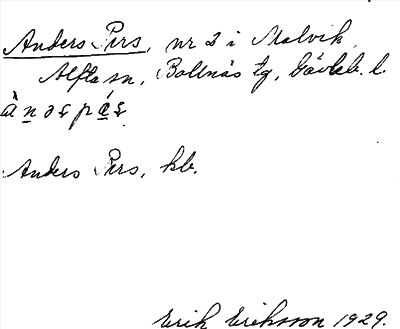 Anders Pers, nr 2 i Malvik,
Alfta sn, Bollnäs tg, Gävleb. l.
Anders Pers, kb.
Erik Eriksson 1929.